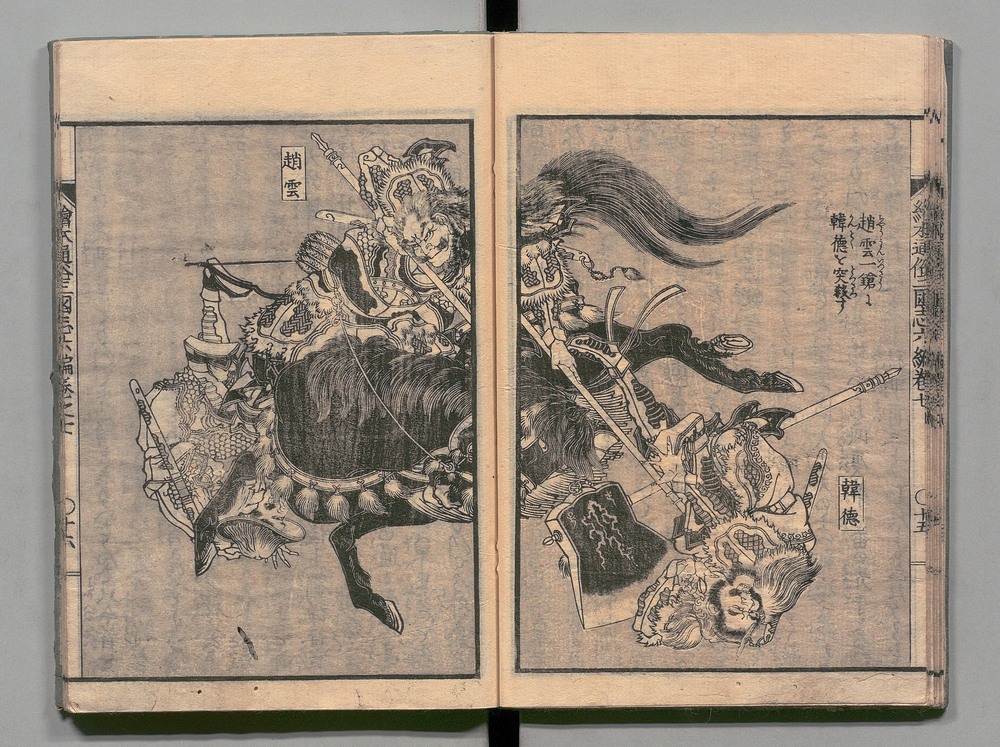 趙雲一鎗に
韓德を突殺す
韓德
繪本通俗三國志六編卷七
〇十五
趙雲
繪本通俗三國志六編卷之七
〇十六